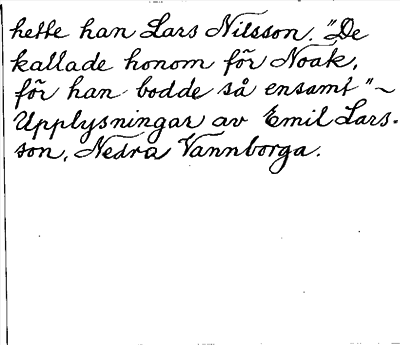 hette han Lars Nilsson. "De
kallade honom för Noak,
för han bodde så ensamt" ~
Upplysningar av Emil Lars-
son, Nedra Vannborga.